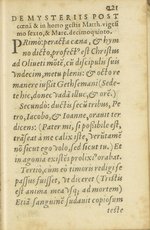 221
DE MYSTERIIS POST
cœnā & in horto gestis Matth. vigesi
mo sexto, & Marc. decimoquinto.
PRimò: peracta cœna, & hym
no dicto, profectᵒ est Christus
ad Oliueti mōtē, cū discipulis suis
vndecim, metu plenis: & octo re
manere iussit Gethsemani (Sede
te hîc, donec vadā illuc, & orē.)
Secundò: ductis secū tribus, Pe
tro, Iacobo, & Ioanne, orauit ter
dicens: (Pater mi, si possibile est,
trāseat à me calix iste, Verūtamē
nō sicut ego volo, sed sicut tu.) Et
in agonia existēs prolixiᵒ orabat.
Tertiò,
passus fuisset, vt diceret (Tristis
est anima mea vsq; ad mortem)
Etiā sanguinē sudauit copiosum
teste